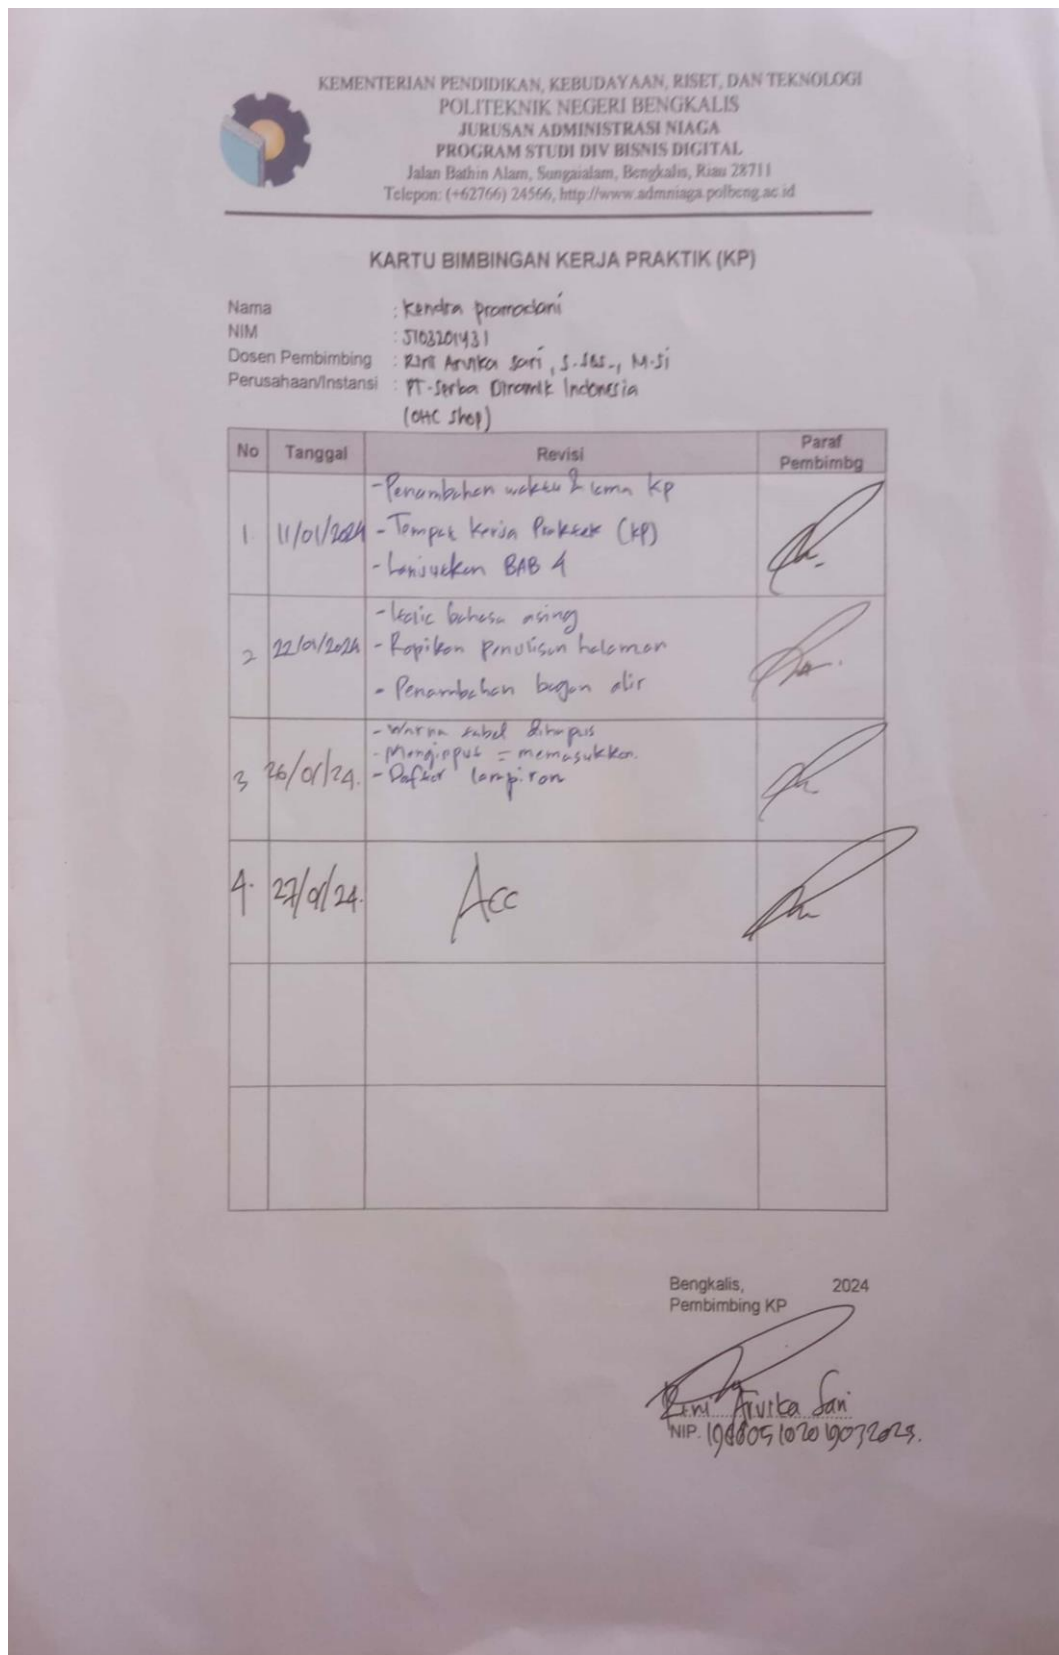 KEMENTERIAN PENDIDIKAN, KEBUDAYAAN, RISET, DAN TEKNOLOGI
POLITEKNIK NEGERI BENGKALIS
JURUSAN ADMINISTRASI NIAGA
PROGRAM STUDI DIV BISNIS DIGITAL
Jalan Bathin Alam, Sungaialam, Bengkalis, Riau 28711
Telepon: (+62766) 24566, http://www.admniaga.polbeng.ac.id
KARTU BIMBINGAN KERJA PRAKTIK (KP)
Nama : Kendra pramodani
NIM : 5103201431
Dosen Pembimbing : Rini Arvika Sari, M.Si
Perusahaan/Instansi : PT. Serba Dinamik Indonesia
(OHC Shop)
No Tanggal Revisi Paraf Pembimbg
1. 11/01/2024 - Penambahan waktu & lama KP
- Tempat Kerja Praktek (KP)
- Lanjutkan BAB 4
2 22/01/2024 - Italic bahasa asing
- Rapikan penulisan halaman
- Penambahan bagan alir
3 26/01/24. - Warna tabel dihapus
- Menginput = memasukkan.
- Daftar lampiran
4. 27/01/24. Acc
Bengkalis, 2024
Pembimbing KP
Rini Arvika Sari
NIP.